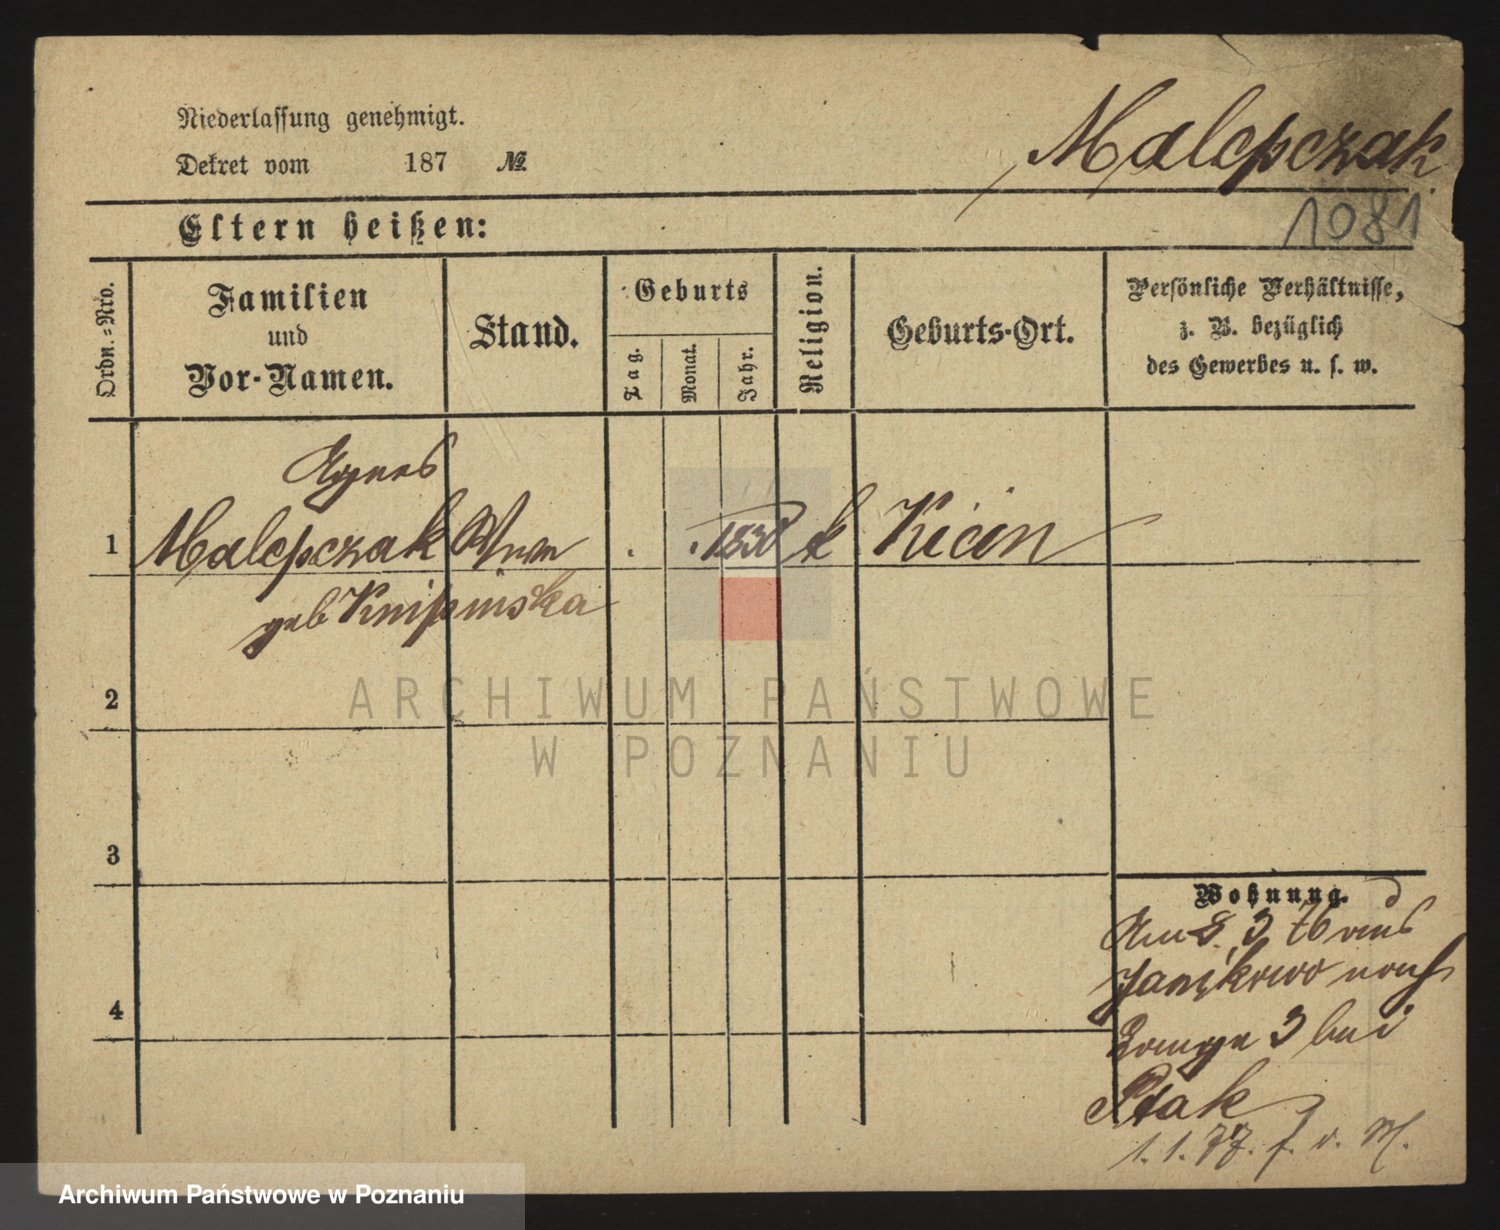 Niederlassung genehmigt.
Dekret vom 187 №
Malepczak
1081
Eltern heißen:
Ordn.-Nro.
Familien
und
Vor-Namen.
Stand.
Geburts
Tag.
Monat.
Jahr.
Religion.
Geburts-Ort.
Persönliche Verhältnisse,
z. B. bezüglich
des Gewerbes u. s. w.
Agnes
1 Malepczak 1838 k Kicin
geb Knipinska
2
3
4
Wohnung.
3 76 aus
Janikowo nach
3 bei
Ptak
1.1.77. f. v. M.
ARCHIWUM PAŃSTWOWE
W POZNANIU
Archiwum Państwowe w Poznaniu